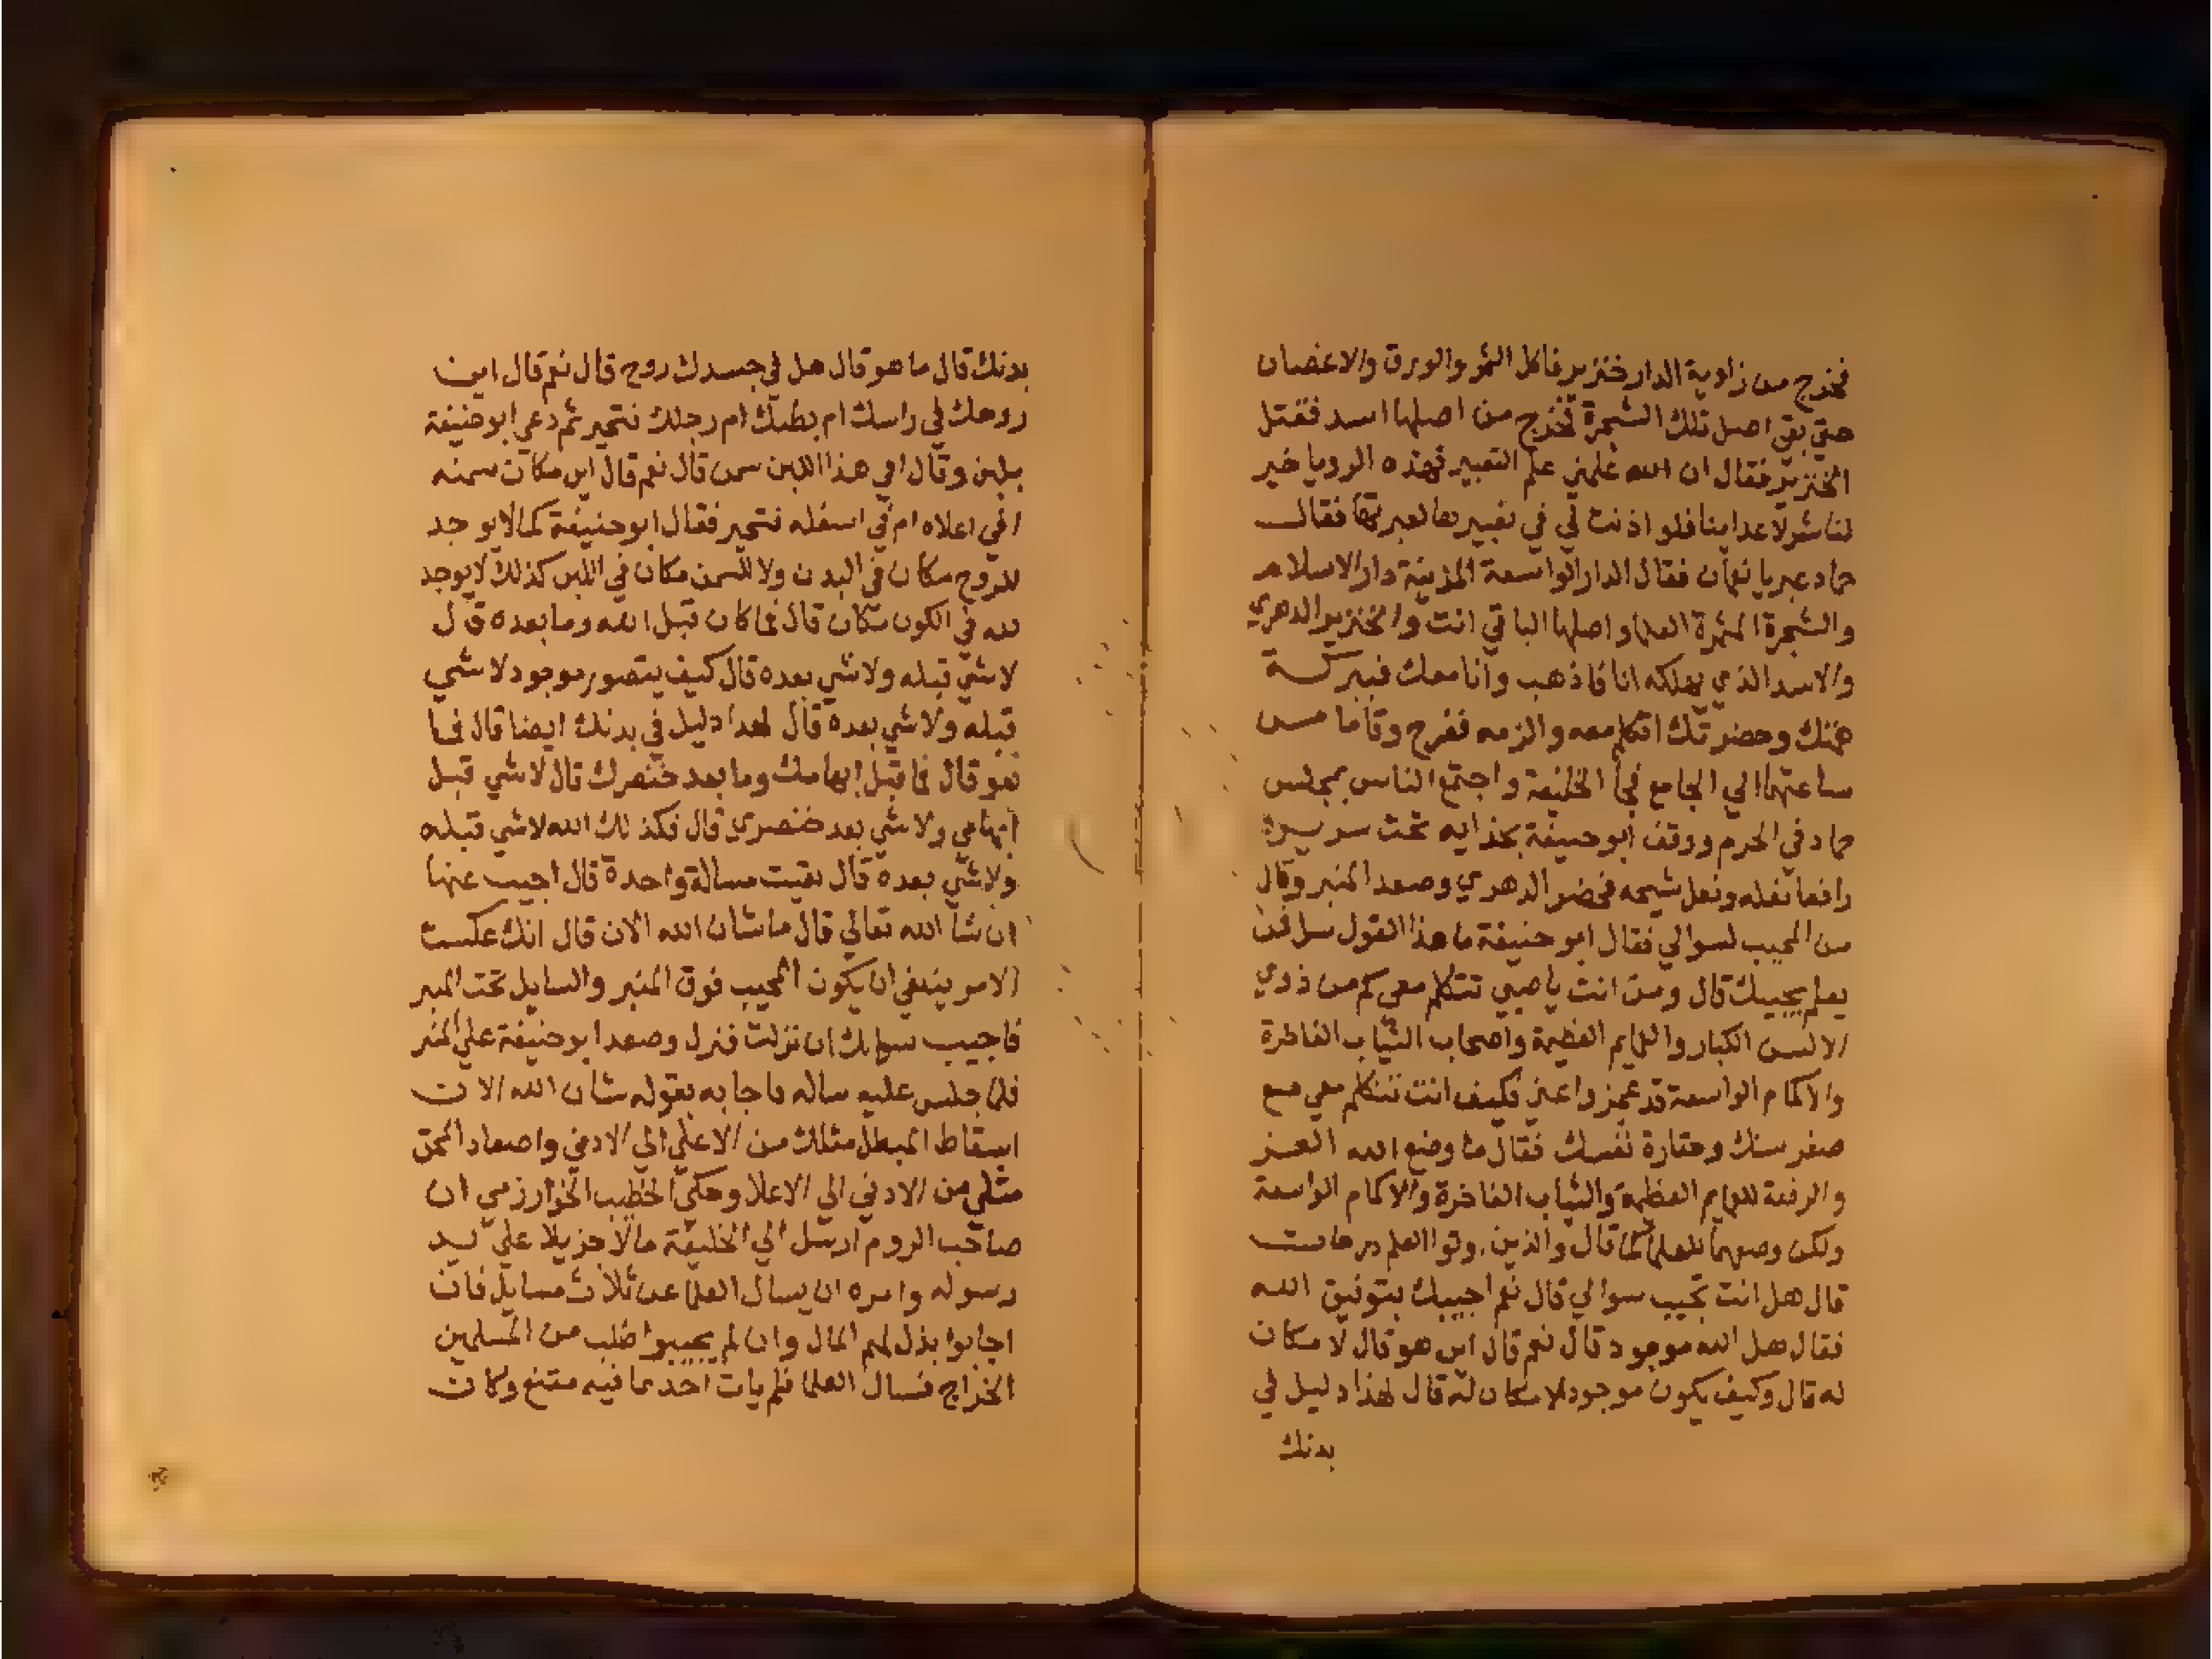 فخرج من زاوية الدار خنزير فاكل الثمر والورق والاغصان
حتي بقي اصل تلك الشجرة فخرج من اصلها اسد فقتل
الخنزير فقال ان الله علمني علم التعبير فهذه الرويا خير
لنا شر لاعداينا فلو اذنت لي في تعبيرها لعبرتها فقال
حماد عبر يا نعمان فقال الدار الواسعة المزينة دار الاسلام
والشجرة المثمرة العلما واصلها الباقي انت والخنزير الدهري
والاسد الذي يهلكه انا فاذهب وانا معك فببركة
همتك وحضرتك اتكلم معه والزمه ففرح وقاما من
ساعتهما الي الجامع فجأ الخليفة واجتمع الناس بمجلس
حماد في الحرم ووقف ابو حنيفة بحذايه تحت سريره
رافعا نعله ونعل شيخه فحضر الدهري وصعد المنبر وقال
من المجيب لسوالي فقال ابو حنيفة ما هذا القول سل فمن
يعلم يجيبك قال ومن انت يا صبي تتكلم معي كم من ذوي
الالسن الكبار والعمايم العظيمة واصحاب الثياب الفاخرة
والاكمام الواسعة قد عجزوا عني فكيف انت تتكلم معي مع
صغر سنك وحقارة نفسك فقال ما وضع الله العز
والرفعة للعمايم العظيمة والثياب الفاخرة والاكمام الواسعة
ولكن وضعهما للعلما كما قال والذين اوتوا العلم درجات
قال هل انت تجيب سوالي قال نعم اجيبك بتوفيق الله
فقال هل الله موجود قال نعم قال اين هو قال لا مكان
له قال وكيف يكون موجود لا مكان له قال لهذا دليل في
بدنك
بدنك قال ما هو قال هل في جسدك روح قال نعم قال اين
روحك في راسك ام بطنك ام رجلك فتحير ثم دعي ابو حنيفة
بلبن وقال افي هذا اللبن سمن قال نعم قال اين مكان سمنه
افي اعلاه ام في اسفله فتحير فقال ابو حنيفة كما لا يوجد
للروح مكان في البدن ولا للسمن مكان في اللبن كذلك لا يوجد
لله في الكون مكان قال فما كان قبل الله وما بعده قال
لا شي قبله ولا شي بعده قال كيف يتصور موجود لا شي
قبله ولا شي بعده قال لهذا دليل في بدنك ايضا قال فما
هو قال فما قبل ابهامك وما بعد خنصرك قال لا شي قبل
ابهامي ولا شي بعد خنصري قال فكذلك الله لا شي قبله
ولا شي بعده قال بقيت مسالة واحدة قال اجيب عنها
ان شا الله تعالي قال ما شان الله الان قال انك عكست
الامر ينبغي ان يكون المجيب فوق المنبر والسايل تحت المنبر
فاجيب سوالك ان نزلت فنزل وصعد ابو حنيفة علي المنبر
فلما جلس عليه ساله فاجابه بقوله شان الله الان
اسقاط المبطل مثلك من الاعلي الي الادني واصعاد المحق
مثلي من الادني الي الاعلا وحكي الخطيب الخوارزمي ان
صاحب الروم ارسل الي الخليفة مالا جزيلا علي يد
رسوله وامره ان يسال العلما عن ثلاث مسايل فان
اجابوا بذل لهم المال وان لم يجيبوا طلب من المسلمين
الخراج فسال العلما فلم يات احد بما فيه مقنع وكان